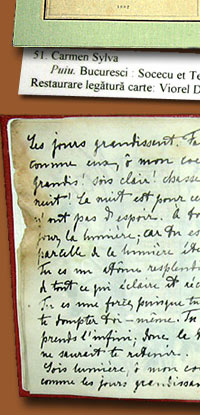 1882
51. Carmen Sylva
Puiu. Bucuresci : Socecu et Te
Restaurare legătură carte: Viorel D
Les jours grandissent. Fa
comme eux, ô mon coeu
grandis! sois clair! chasse
nuit! La nuit est pour ce
n'ont pas d'espoir. À to
jour, la lumière, car tu es
parcelle de la lumière éte
Tu es un atôme resplend
à tout ce qui éclaire et réc
Tu es une force, puisque tu
te dompter toi-même. Tu
prends l'infini, donc le
ne saurait te retenir.
Sois lumière, ô mon co
comme les jours grandissan